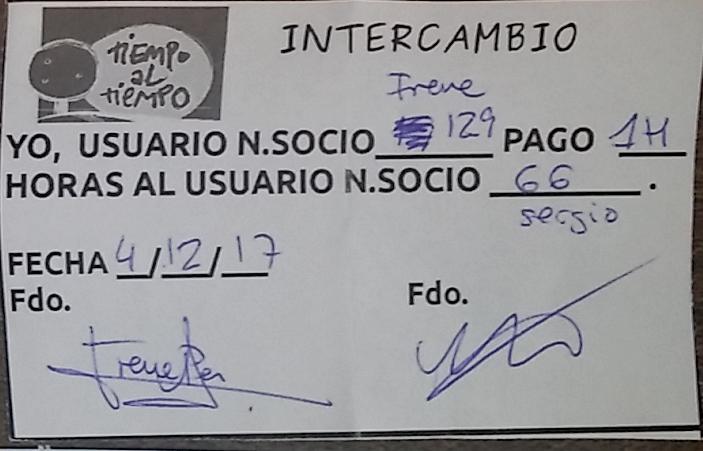 TIEMPO
AL
TIEMPO
INTERCAMBIO
Irene
YO, USUARIO N.SOCIO 129 PAGO 1H
HORAS AL USUARIO N.SOCIO 66.
sergio
FECHA 4/12/17
Fdo. Fdo.
Irene